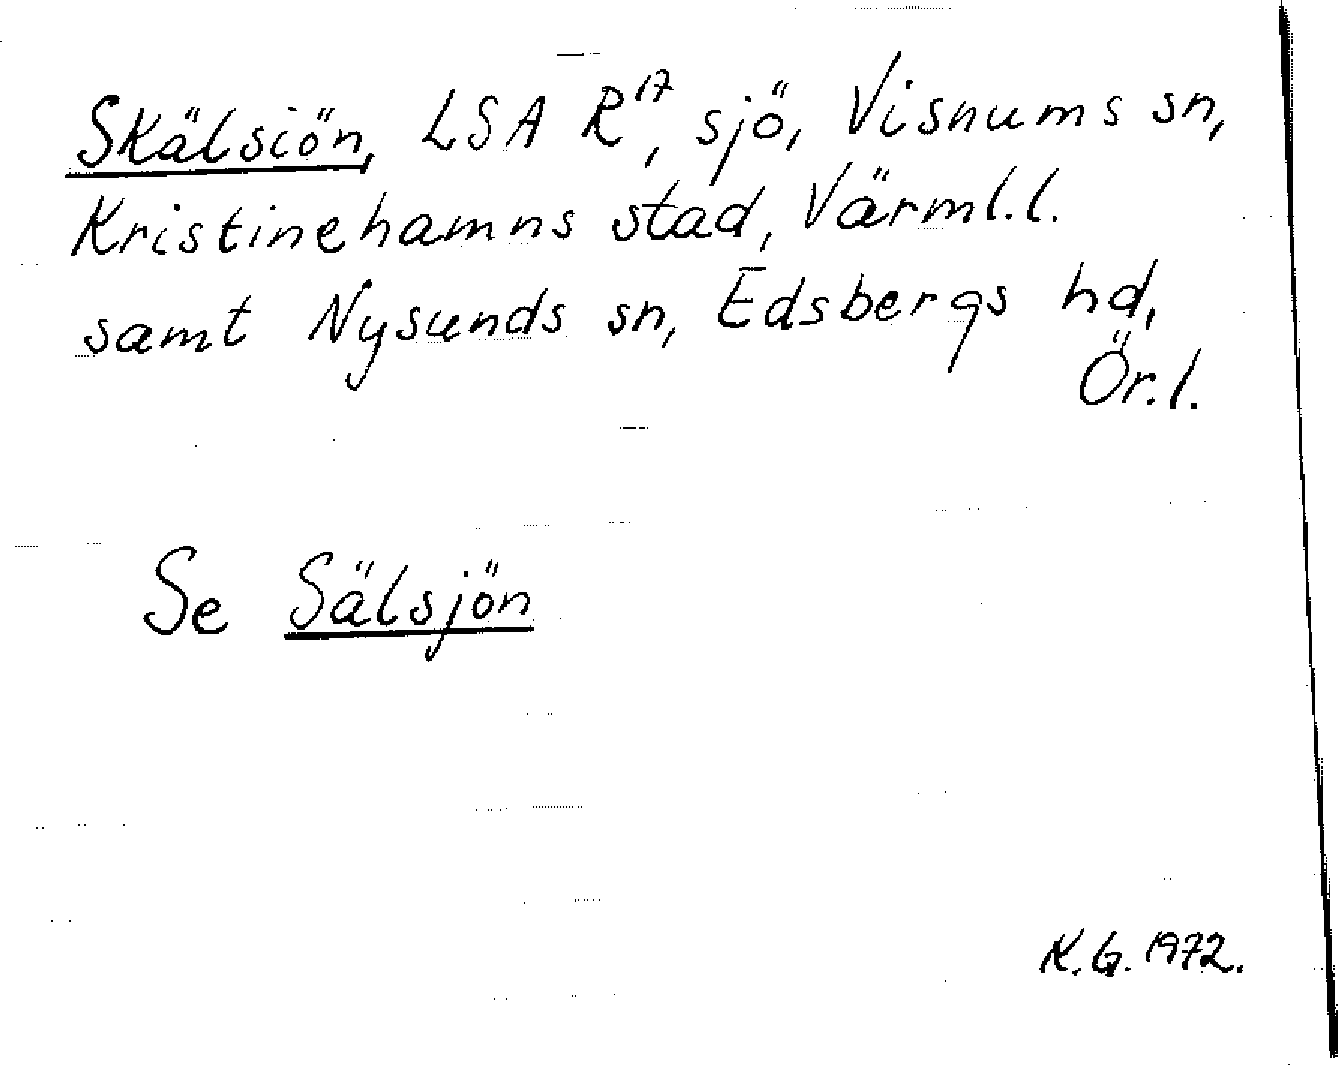 Skälsiön, LSA R17, sjö, Visnums sn,
Kristinehamns stad, Värml.l.
samt Nysunds sn, Edsbergs hd,
Ör.l.
Se Sälsjön
K.G. 1972.